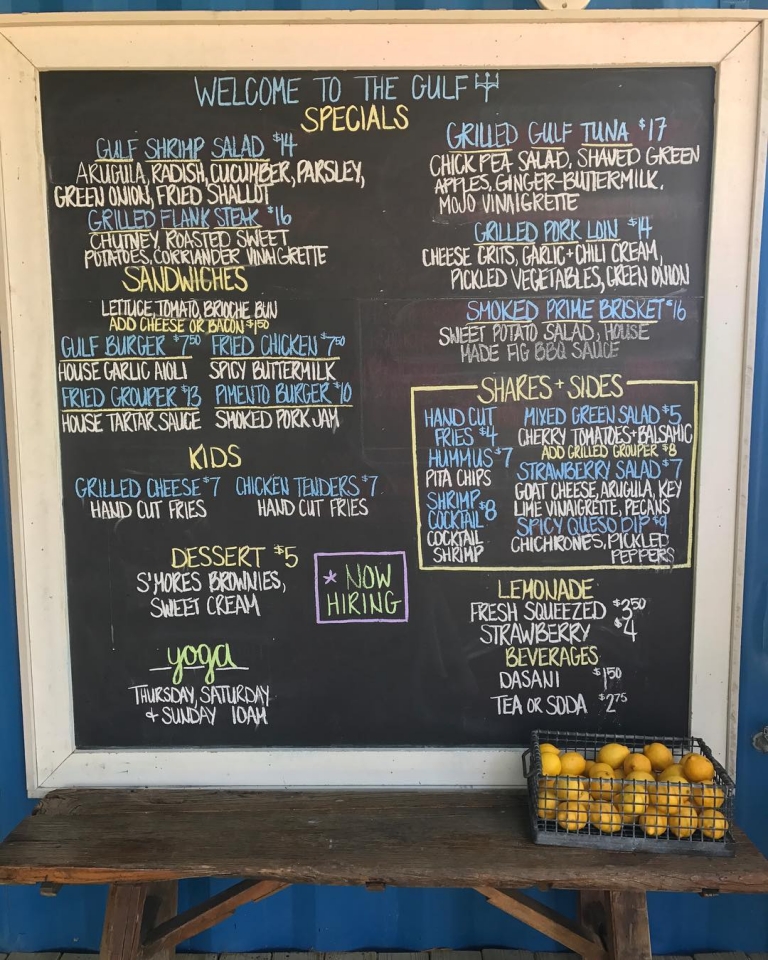 WELCOME TO THE GULF
SPECIALS
GULF SHRIMP SALAD $14
ARUGULA, RADISH, CUCUMBER, PARSLEY,
GREEN ONION, FRIED SHALLOT
GRILLED FLANK STEAK $16
CHUTNEY, ROASTED SWEET
POTATOES, CORRIANDER VINAIGRETTE
SANDWICHES
LETTUCE, TOMATO, BRIOCHE BUN
ADD CHEESE OR BACON $1.50
GULF BURGER $7.50 FRIED CHICKEN $7.50
HOUSE GARLIC AIOLI SPICY BUTTERMILK
FRIED GROUPER $13 PIMENTO BURGER $10
HOUSE TARTAR SAUCE SMOKED PORK JAM
KIDS
GRILLED CHEESE $7 CHICKEN TENDERS $7
HAND CUT FRIES HAND CUT FRIES
DESSERT $5
S'MORES BROWNIES,
SWEET CREAM
* NOW
HIRING
yoga
THURSDAY, SATURDAY
+ SUNDAY 10AM
GRILLED GULF TUNA $17
CHICK PEA SALAD, SHAVED GREEN
APPLES, GINGER-BUTTERMILK,
MOJO VINAIGRETTE
GRILLED PORK LOIN $14
CHEESE GRITS, GARLIC+CHILI CREAM,
PICKLED VEGETABLES, GREEN ONION
SMOKED PRIME BRISKET $16
SWEET POTATO SALAD, HOUSE
MADE FIG BBQ SAUCE
SHARES + SIDES
HAND CUT
FRIES $4
HUMMUS $7
PITA CHIPS
SHRIMP
COCKTAIL $8
COCKTAIL
SHRIMP
MIXED GREEN SALAD $5
CHERRY TOMATOES+BALSAMIC
ADD GRILLED GROUPER $8
STRAWBERRY SALAD $7
GOAT CHEESE, ARUGULA, KEY
LIME VINAIGRETTE, PECANS
SPICY QUESO DIP $9
CHICHRONES, PICKLED
PEPPERS
LEMONADE
FRESH SQUEEZED $3.50
STRAWBERRY $4
BEVERAGES
DASANI $1.50
TEA OR SODA $2.75